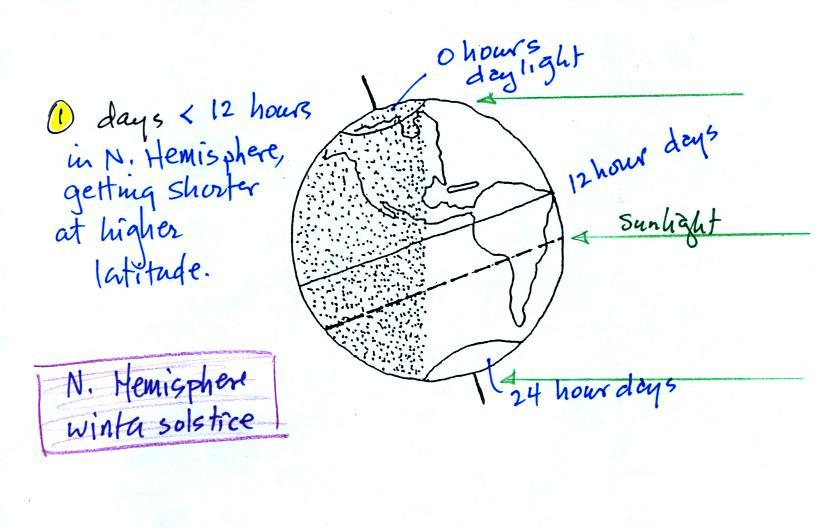 0 hours
daylight
1 days < 12 hours
in N. Hemisphere,
getting shorter
at higher
latitude.
12 hour days
Sunlight
24 hour days
N. Hemisphere
winter solstice